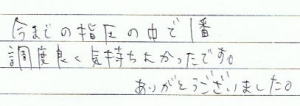 今までの指圧の中で1番
調度良く気持ちよかったです。
ありがとうございました。